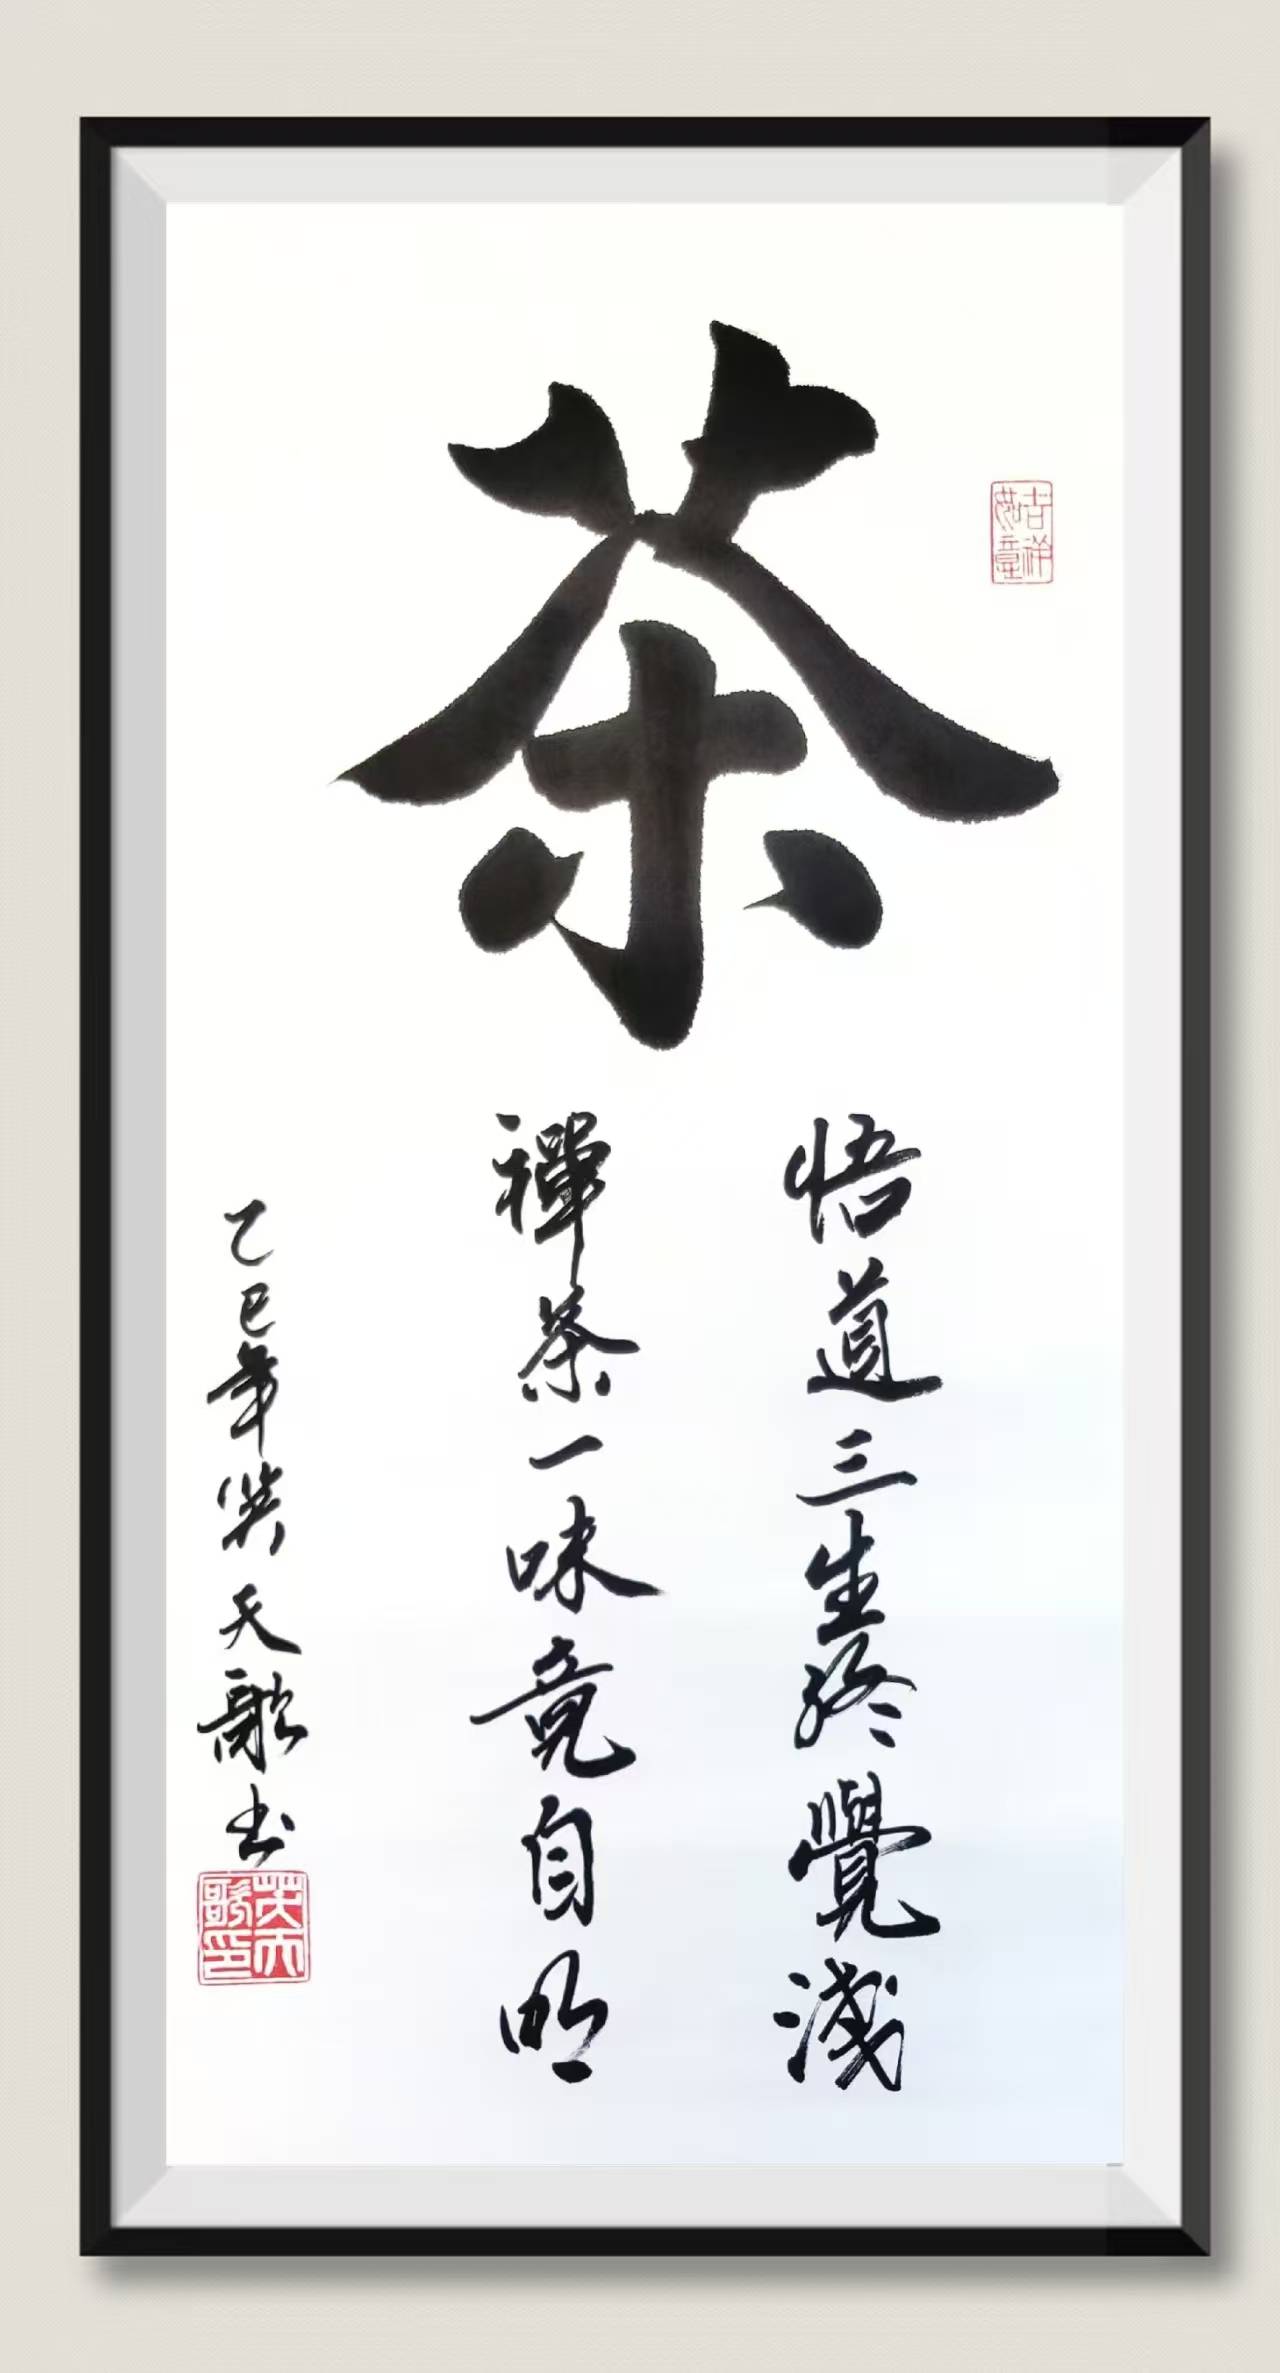 茶
吉祥如意
悟道三生終覺淺
禪茶一味竟自明
乙巳年樊天歌書
樊天歌印